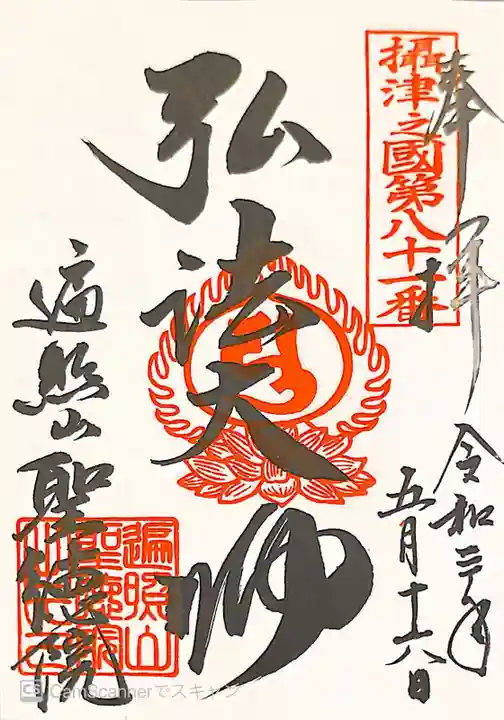 奉拝
攝津之國第八十一番
令和 年
五月十六日
弘法大師
遍照山
聖徳院
遍照山
CS CamScannerでスキャン